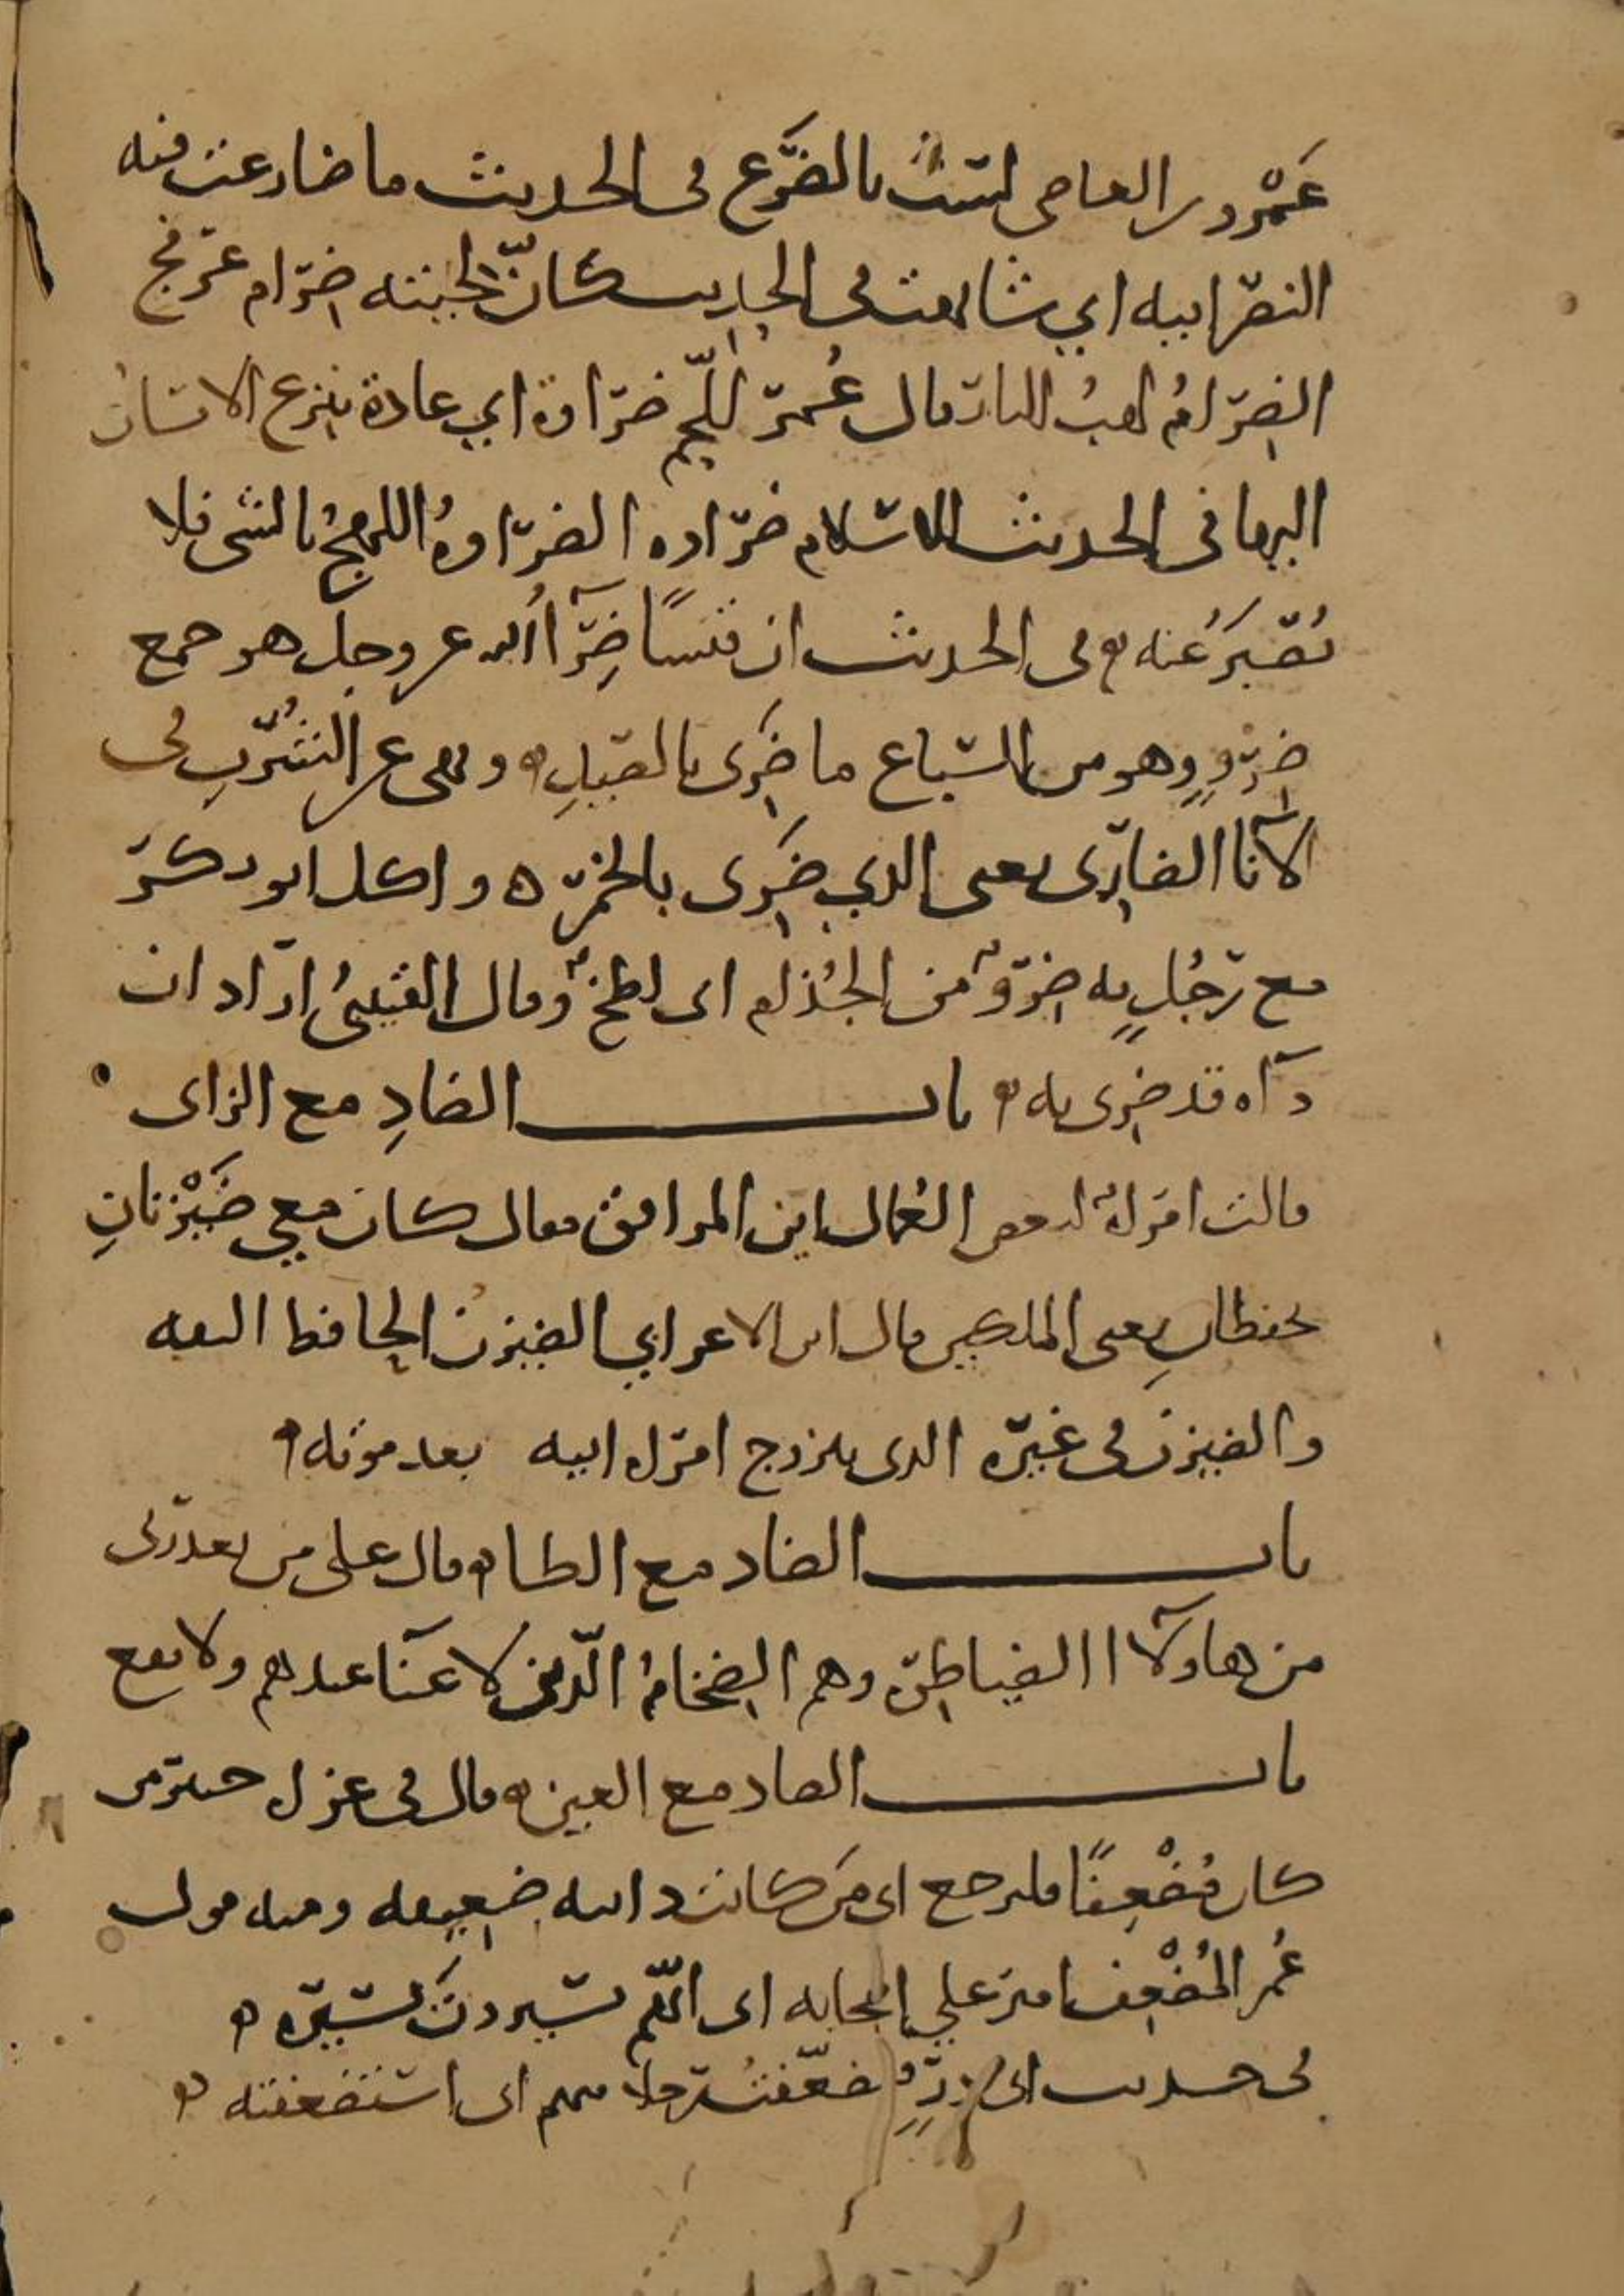 عَمْرو بن العاصي لستُ بالضَّرَع في الحديث ما ضارعت فيه
النصرانيه اي شابهت في الحديث كانّ لحيته ضِرَام عَرْفج
الضِرَامُ لهبُ النار قال عُمر للّحم ضَرَاوة اي عادة ينزع الانسان
اليها في الحديث للاسلام ضرَاوه الضرَاوهُ اللهجُ بالشي فلا
يُصْبَرُ عنه في الحديث ان قيسًا ضِرَآ الله عز وجل هو جمع
ضِرْوٍ وهو من السّباع ما ضَرِى بالصيدِ ونهى عن الشُّربِ في
الانآ الضاري يعني الذي ضَرِى بالخمر ه واكل ابو بكر
مع رَجُلٍ به ضِرْوٌ من الجُذام اى لطخٌ وقال القتيبيُ اراد ان
دآه قد ضرى به باب الضادِ مع الزاى
قالت امراةٌ لبعض العُمال اين المرافق فقال كان معي ضَيْزنانِ
يحفظانِ يعني الملكين قال ابن الاعرابي الضيزن الحافظ الثقه
والضيزن في غيره الذى يتزوج امراه ابيه بعد موته
باب الضاد مع الطا قال على من يعذرنى
من هاولآا الضياطِره وهم الضِخامُ الّذين لا غنآ عندهم ولا نفع
باب الضاد مع العين قال في غزاه خيبر من
كان مُضْعِفًا فليرجع اى مَن كانت دابته ضعيفه ومنه قول
عُمر المُضْعِف امير على اصحابه اى انّهم يسيرون بسَيره
في حديث ابى ذرٍّ فضعّفتُ رجلا منهم اى استضعفته